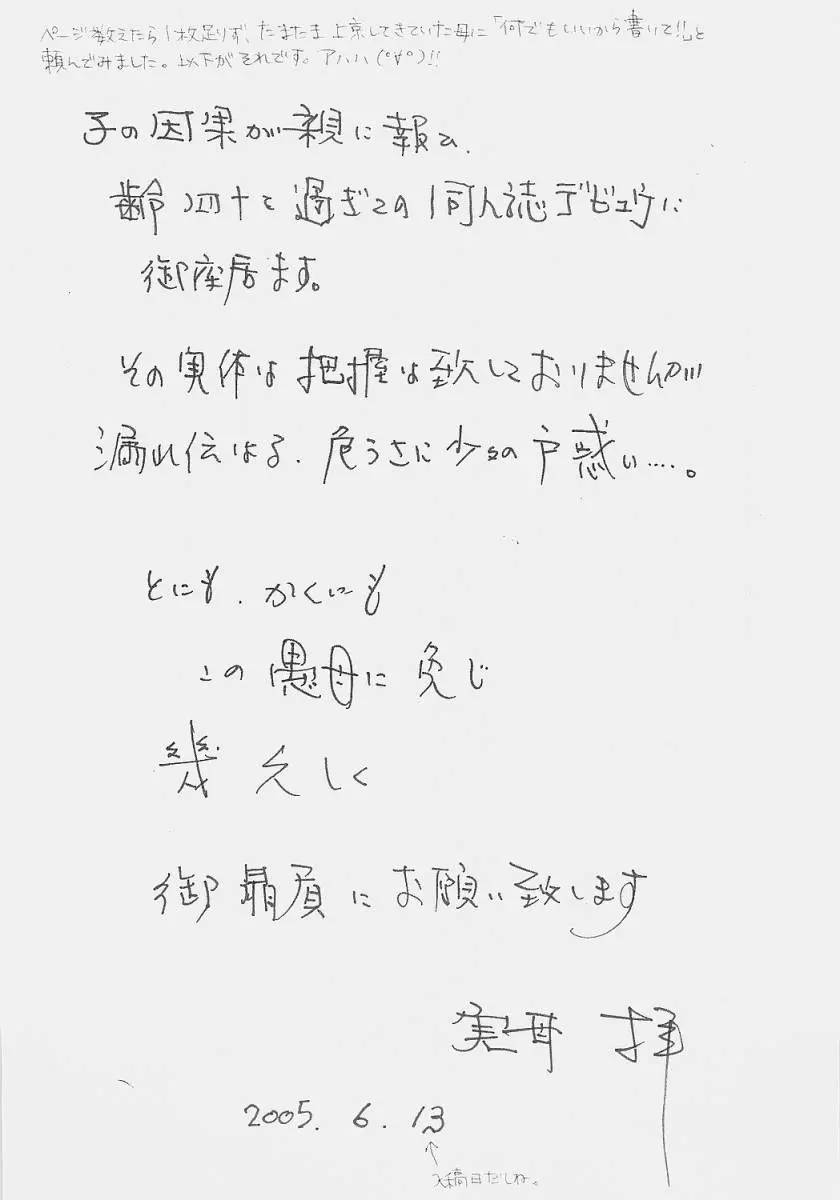 ページ数えたら1枚足りず、たまたま上京してきていた母に「何でもいいから書いて!!」と
頼んでみました。以下がそれです。アハハ(°∀°)!!
子の因果が親に報ひ、
齢四十を過ぎての同人誌デビュウに
御座居ます。
その実体は把握は致しておりませんが
漏れ伝はる、危うさに少々の戸惑い….。
とにも、かくにも
この愚母に免じ
幾久しく
御贔屓にお願い致します
実母 拝
2005. 6. 13
↑
入稿日だしね。